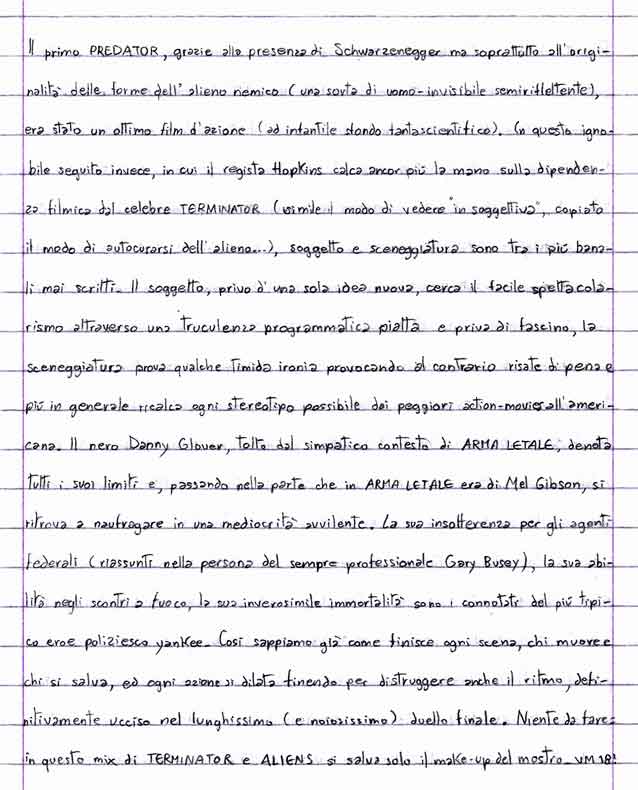 Il primo PREDATOR, grazie alla presenza di Schwarzenegger ma soprattutto all'origi-
nalità delle forme dell'alieno nemico (una sorta di uomo-invisibile semiriflettente),
era stato un ottimo film d'azione (ad infantile sfondo fantascientifico). In questo igno-
bile seguito invece, in cui il regista Hopkins calca ancor più la mano sulla dipenden-
za filmica dal celebre TERMINATOR (simile il modo di vedere "in soggettiva", copiato
il modo di autocurarsi dell'alieno...), soggetto e sceneggiatura sono tra i più bana-
li mai scritti. Il soggetto, privo d'una sola idea nuova, cerca il facile spettacola-
rismo attraverso una truculenza programmatica piatta e priva di fascino, la
sceneggiatura prova qualche timida ironia provocando al contrario risate di pena e
più in generale ricalca ogni stereotipo possibile dai peggiori action-movies all'ameri-
cana. Il nero Danny Glover, tolto dal simpatico contesto di ARMA LETALE, denota
tutti i suoi limiti e, passando nella parte che in ARMA LETALE era di Mel Gibson, si
ritrova a naufragare in una mediocrità avvilente. La sua insofferenza per gli agenti
federali (riassunti nella persona del sempre professionale Gary Busey), la sua abi-
lità negli scontri a fuoco, la sua inverosimile immortalità sono i connotati del più tipi-
co eroe poliziesco yankee. Così sappiamo già come finisce ogni scena, chi muore e
chi si salva, ed ogni azione si dilata finendo per distruggere anche il ritmo, defi-
nitivamente ucciso nel lunghissimo (e noiosissimo) duello finale. Niente da fare:
in questo mix di TERMINATOR e ALIENS si salva solo il make-up del mostro. VM 18!